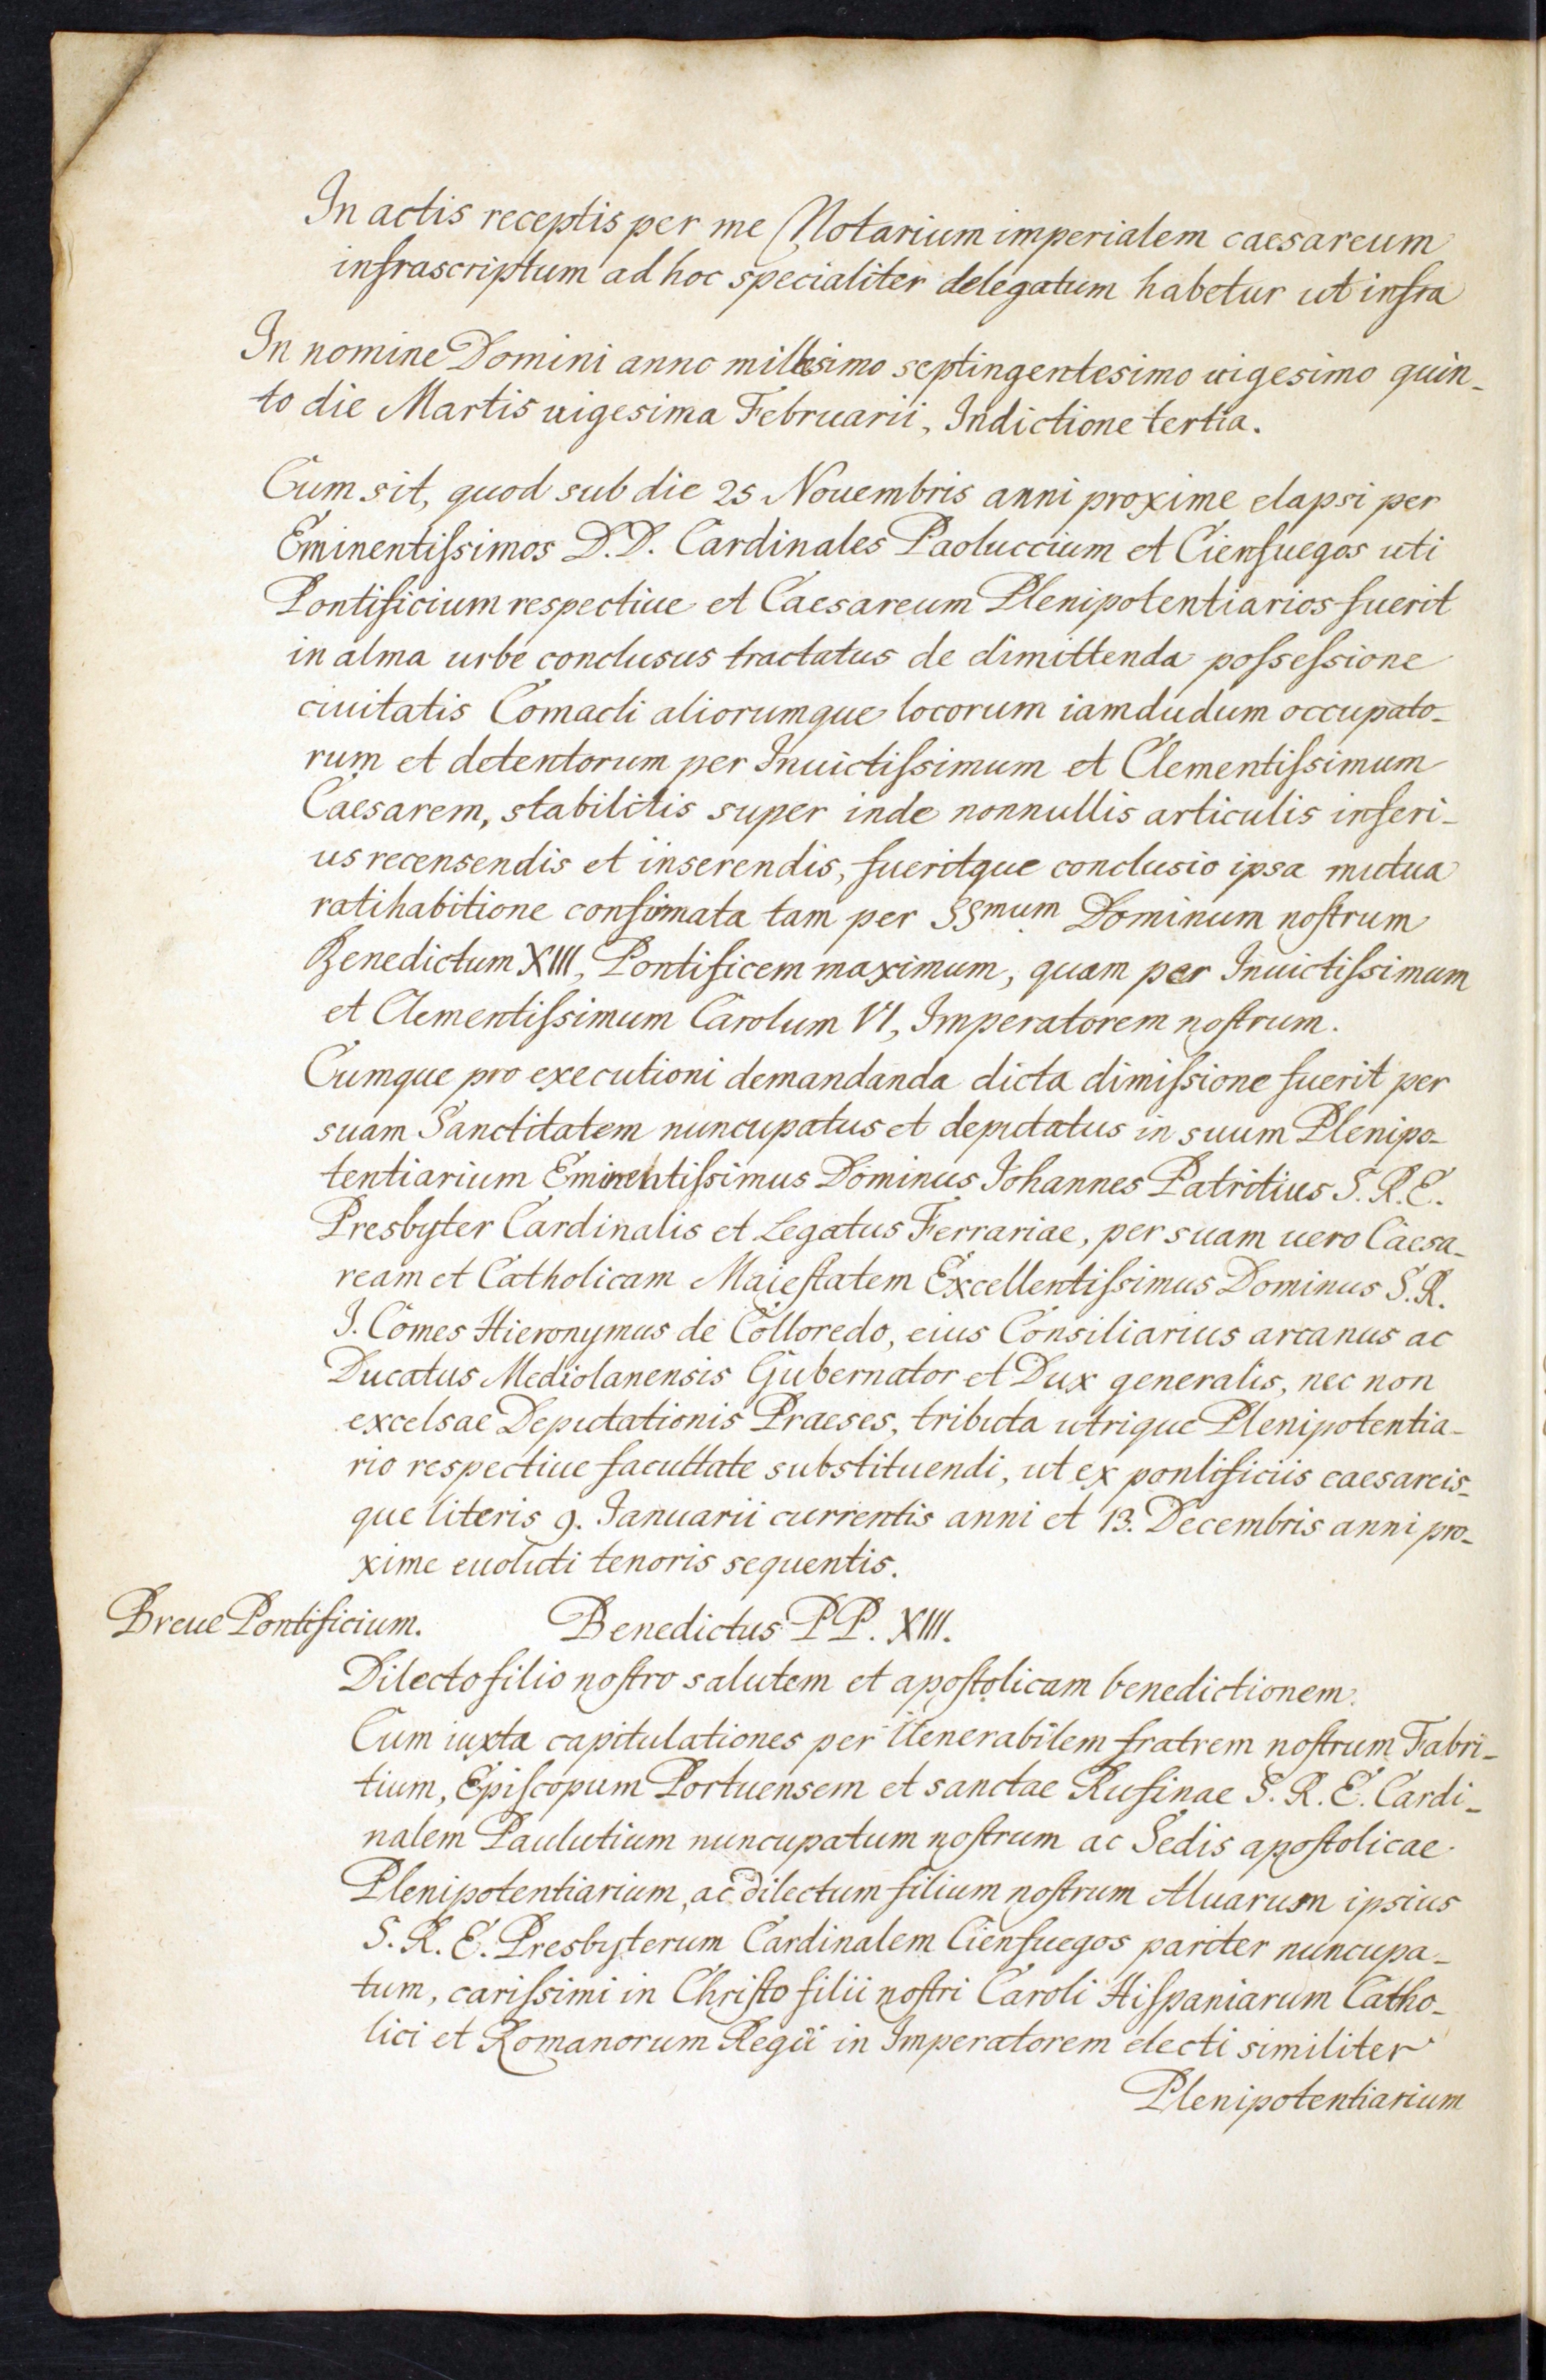 In actis receptis per me Notarium imperialem caesareum
infrascriptum ad hoc specialiter delegatum habetur ut infra
In nomine Domini anno millesimo septingentesimo uigesimo quin-
to die Martis uigesima Februarii, Indictione tertia.
Cum sit, quod sub die 25 Nouembris anni proxime elapsi per
Eminentiſsimos D.D. Cardinales Paoluccium et Cienfuegos uti
Pontificium respectiue et Caesareum Plenipotentiarios fuerit
in alma urbe conclusus tractatus de dimittenda poſseſsione
ciuitatis Comacli aliorumque locorum iamdudum occupato-
rum et detentorum per Inuictiſsimum et Clementiſsimum
Caesarem, stabilitis super inde nonnullis articulis inferi-
us recensendis et inserendis, fueritque conclusio ipsa mutua
ratihabitione confirmata tam per SSmum Dominum noſtrum
Benedictum XIII, Pontificem maximum, quam per Inuictiſsimum
et Clementiſsimum Carolum VI, Imperatorem noſtrum.
Cumque pro executioni demandanda dicta dimiſsione fuerit per
suam Sanctitatem nuncupatus et deputatus in suum Plenipo-
tentiarium Eminentiſsimus Dominus Johannes Patritius S.R.E.
Presbyter Cardinalis et Legatus Ferrariae, per suam uero Caesa-
ream et Catholicam Maieſtatem Excellentiſsimus Dominus S.R.
I. Comes Hieronymus de Colloredo, eius Consiliarius arcanus ac
Ducatus Mediolanensis Gubernator et Dux generalis, nec non
excelsae Deputationis Praeses, tributa utrique Plenipotentia-
rio respectiue facultate substituendi, ut ex pontificiis caesareis-
que literis 9. Ianuarii currentis anni et 13. Decembris anni pro-
xime euoluti tenoris sequentis.
Breue Pontificium. Benedictus PP. XIII.
Dilecto filio noſtro salutem et apoſtolicam benedictionem.
Cum iuxta capitulationes per Uenerabilem fratrem noſtrum Fabri-
tium, Epiſcopum Portuensem et sanctae Rufinae S.R.E. Cardi-
nalem Paulutium nuncupatum noſtrum ac Sedis apoſtolicae
Plenipotentiarium, ac dilectum filium noſtrum Aluarum ipsius
S.R.E. Presbyterum Cardinalem Cienfuegos pariter nuncupa-
tum, cariſsimi in Chriſto filii noſtri Caroli Hiſpaniarum Catho-
lici et Romanorum Regii in Imperatorem electi similiter
Plenipotentiarium